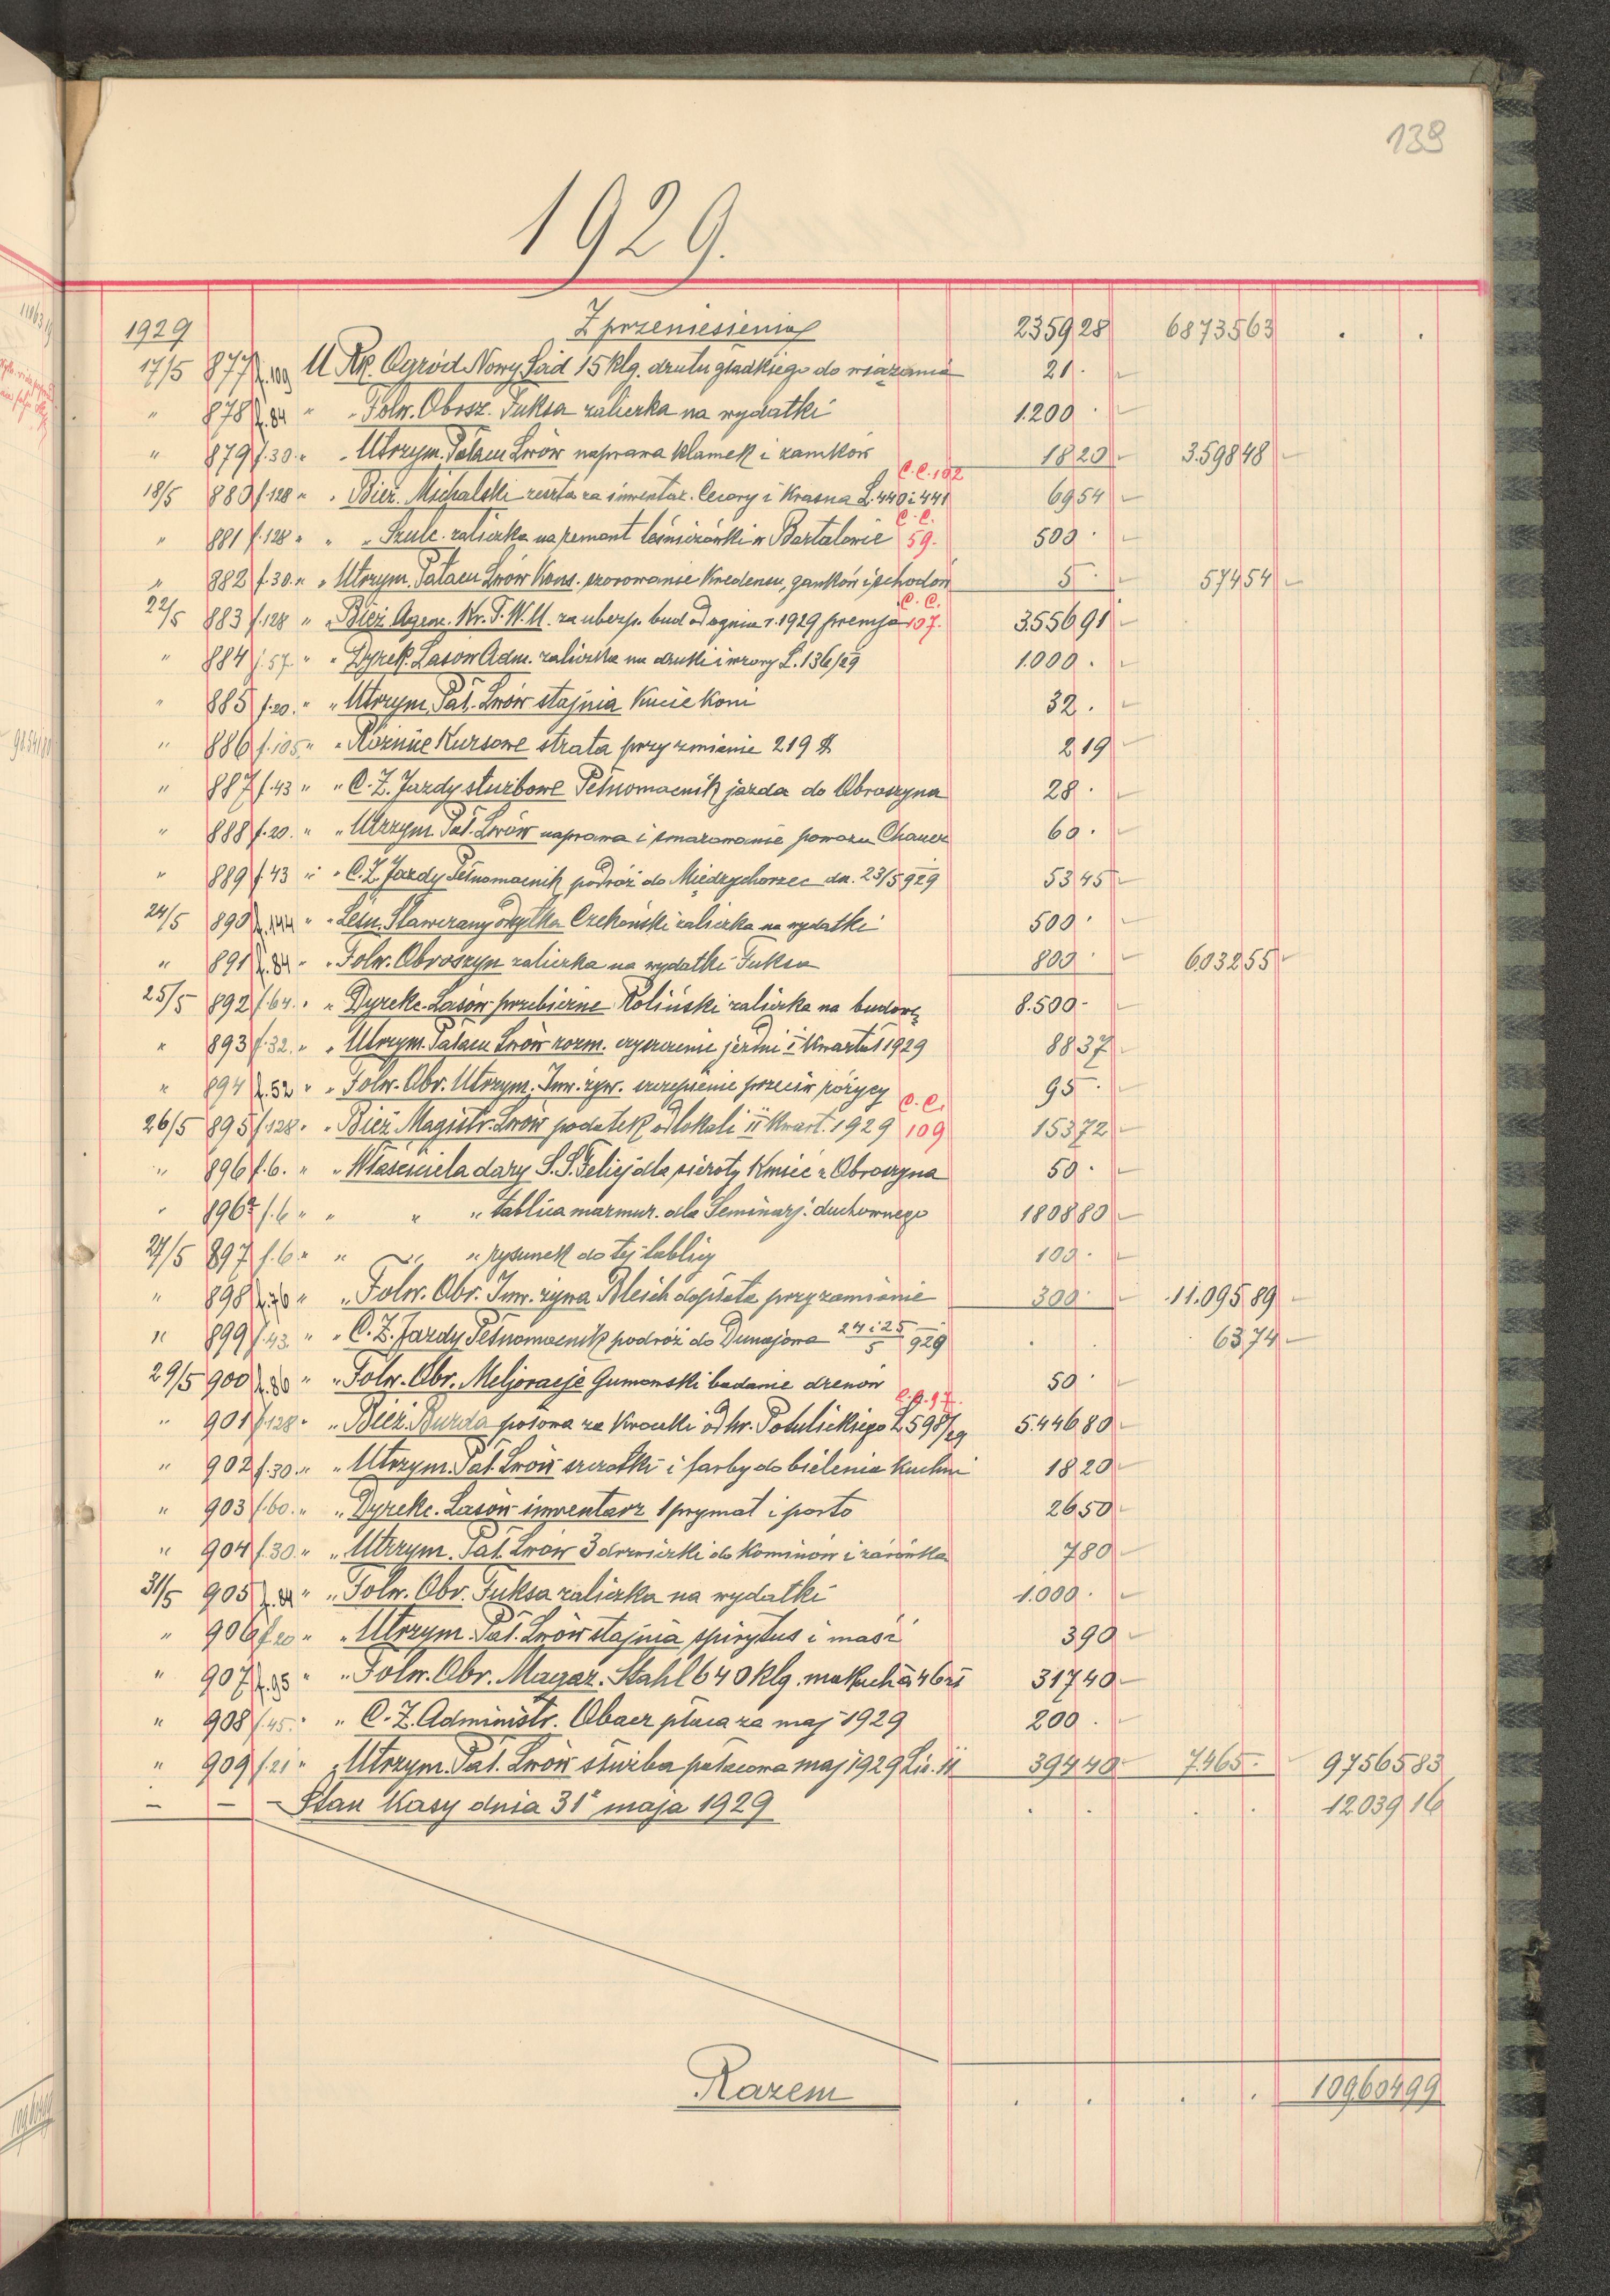 139
1929.
1929 Z przeniesienia 2359 28 68735 63 . .
17/5 877 f.109 U Rk. Ogród Nowy Sad 15 klg. drutu gładkiego do wiązania 21 .
" 878 f.84 " " Folw. Obrosz. Fuksa zaliczka na wydatki 1.200 .
" 879 f.30. " " Utrzym. Pałacu Lwów naprawa klamek i zamków 18 20 3.598 48
C.C. 102
18/5 880 f.128 " " Bież. Michalski reszta za inwentar. Cecory i Krasna L. 440 i 441 69 54
C.C.
" 881 f.128 " " " Szulc zaliczka na remont leśniczówki w Bartatowie 59. 500 .
" 882 f.30. " " Utrzym. Pałacu Lwów Kons. szorowanie kredensu, ganków i schodów 5 . 574 54
C.C.
22/5 883 f.128 " " Bież. Agenc. Kr. T.W.U. za ubezp. bud od ognia r. 1929 premja 107. 3.556 91
" 884 f.57. " " Dyrek. Lasów Adm. zaliczka na druki i wzory L. 136/29 1.000 .
" 885 f.20. " " Utrzym. Pał. Lwów stajnia kucie koni 32 .
" 886 f.105 " " Różnice Kursowe strata przy zmianie 219 $ 2 19
" 887 f.43 " " C.Z. Jazdy służbowe Pełnomocnik jazda do Obroszyna 28 .
" 888 f.20. " " Utrzym. Pał. Lwów naprawa i smarowanie powozu Chauer 60 .
" 889 f.43 " " C.Z. Jazdy Pełnomocnik podróż do Międzychorzec dn. 23/5 929 53 45
24/5 890 f.144 " " Leśn. Stawczany Czekoński zaliczka na wydatki 500 .
" 891 f.84 " " Folw. Obroszyn zaliczka na wydatki Fuksa 800 . 6.032 55
25/5 892 f.64. " " Dyrekc. Lasów przebieżne Roliński zaliczka na budowę 8.500 -
" 893 f.32. " " Utrzym. Pałacu Lwów rozm. czyszczenie jezdni I kwartał 1929 88 37
" 894 f.52 " " Folw. Obr. Utrzym. Inw. żyw. szczepienie przeciw różycy 95 .
C.C.
26/5 895 f.128 " " Bież. Magistr. Lwów podatek od lokali II kwart. 1929 109 153 72
" 896 f.6. " " Właściciela dary S.S. Felicj. dla sieroty Kmieć z Obroszyna 50 .
" 896a f.6 " " " " tablica marmur. dla Seminarj. duchownego 1808 80
27/5 897 f.6 " " " " rysunek do tej tablicy 100 .
" 898 f.76 " " Folw. Obr. Inw. żywa Bleich dopłata przy zamianie 300 . 11.095 89
" 899 f.43. " " C.Z. Jazdy Pełnomocnik podróż do Dunajowa 24 i 25/5 929 . . 63 74
29/5 900 f.86 " " Folw. Obr. Meljoracje Gumowski badanie drenów 50 .
C.C. 97.
" 901 f.128 " " Bież. Burda połowa za krocuki od hr. Potulickiego L 598/29 5.446 80
" 902 f.30. " " Utrzym. Pał. Lwów szczotki i farby do bielenia kuchni 18 20
" 903 f.60. " " Dyrekc. Lasów inwentarz 1 prymat i porto 26 50
" 904 f.30. " " Utrzym. Pał. Lwów 3 drzwiczki do kominów i żarówka 7 80
31/5 905 f.84 " " Folw. Obr. Fuksa zaliczka na wydatki 1.000 .
" 906 f.20 " " Utrzym. Pał. Lwów stajnia spirytus i maść 3 90
" 907 f.95 " " Folw. Obr. Magaz. Stahl 640 klg. makuch à 46 zł 317 40
" 908 f.45. " " C.Z. Administr. Obacz płaca za maj 1929 200 .
" 909 f.21 " " Utrzym. Pał. Lwów służba pałacowa maj 1929 Lis. II 394 40 7.465 . 97565 83
- - - Stan Kasy dnia 31º maja 1929 . . . . 12039 16
Razem . . . . 109604 99